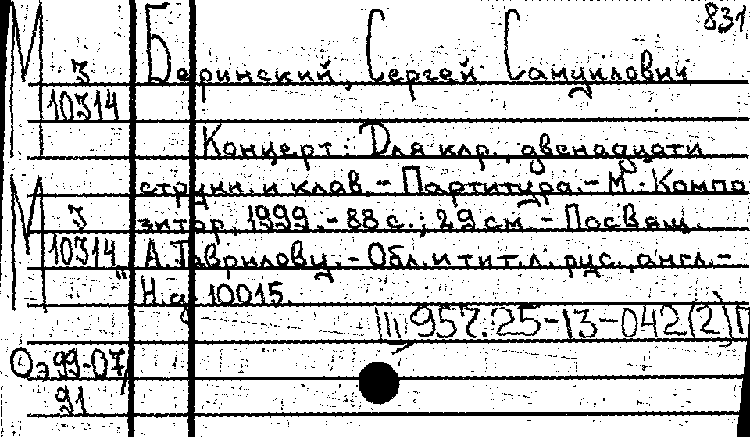 831
Беринский, Сергей Самуилович
М З
10314
Концерт: Для клр., двенадцати
струнн. и клав. - Партитура. - М.: Компо
М З
зитор, 1999. - 88 с.; 29 см. - Посвящ.
10314
А. Гаврилову. - Обл. и тит. л. рус., англ. -
Н. д. 10015.
957.25-13-042(2)П
Оэ99-07/
91